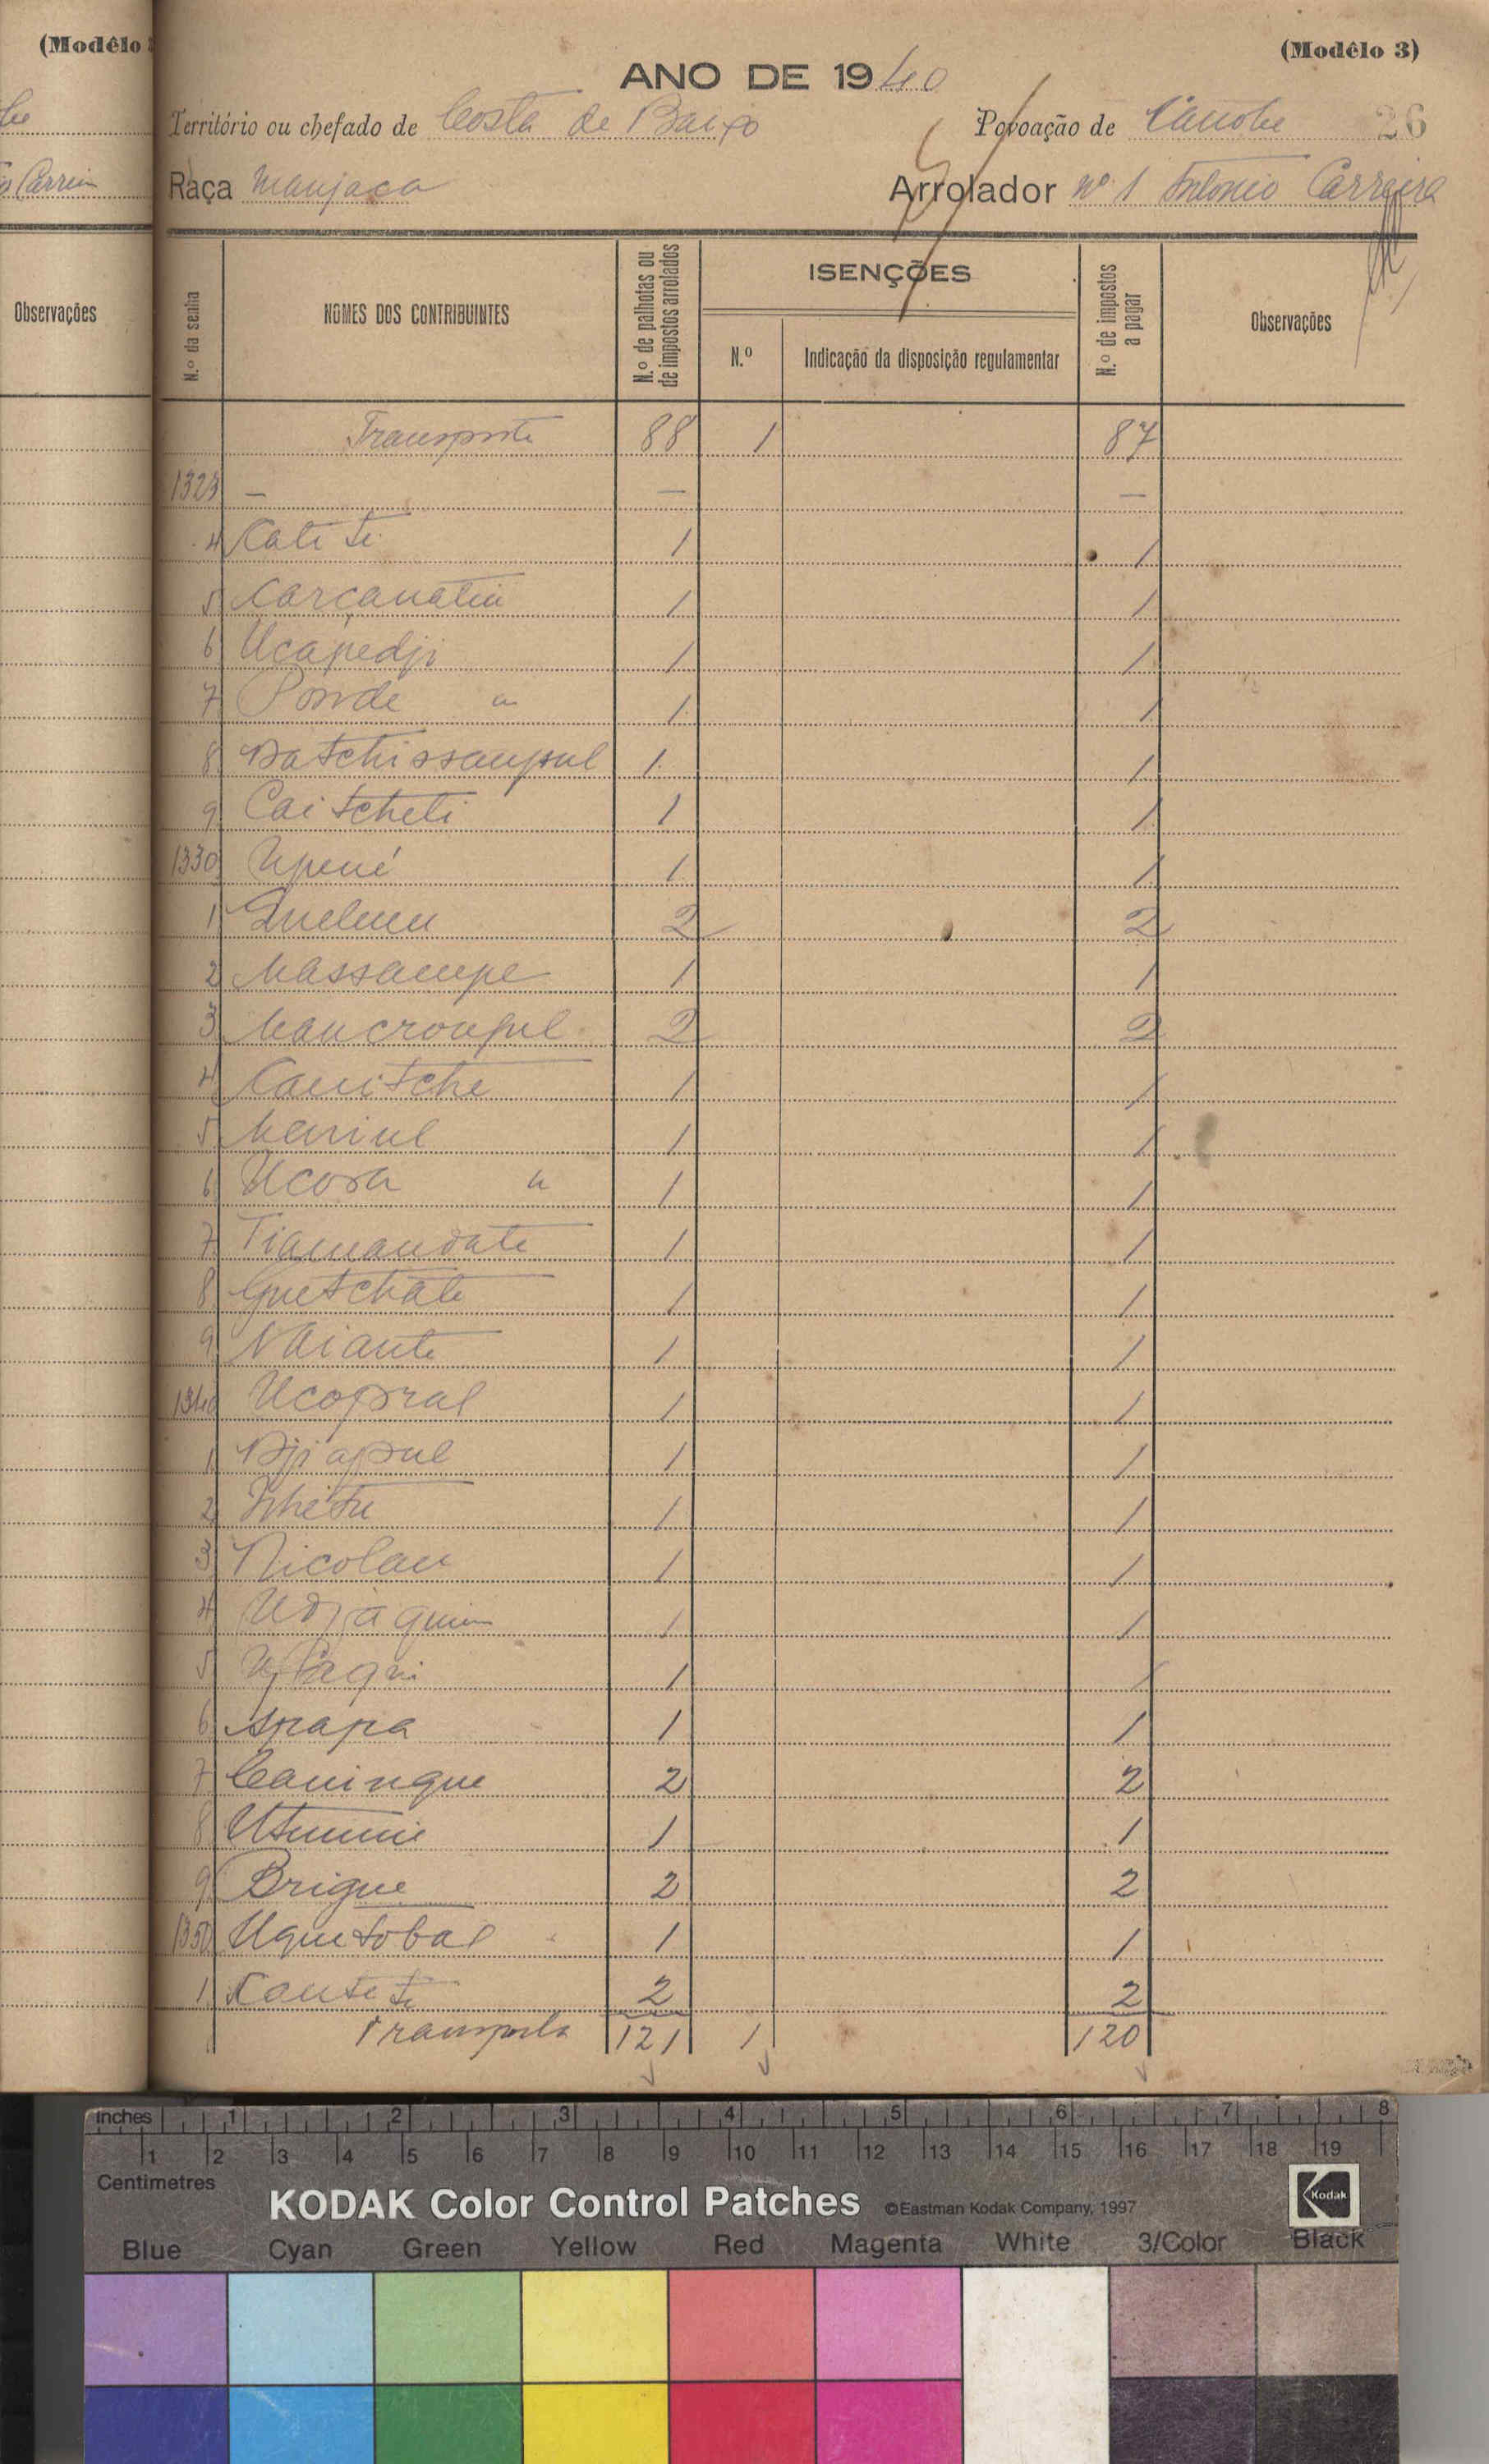 (Modêlo
(Modêlo 3)
ANO DE 1940
Território ou chefado de Costa de Baixo
Povoação de Canobe 26
Raça Manjaca
Arrolador nº 1 Antonio Carreira
Observações
N.º da senha
NOMES DOS CONTRIBUINTES
N.º de palhotas ou de impostos arrolados
ISENÇÕES
N.º
Indicação da disposição regulamentar
N.º de impostos a pagar
Observações
Transporte 88 1 87
1323 — — —
4 Catete 1 1
5 Carçanatiu 1 1
6 Ucapedji 1 1
7 Ponde " 1 1
8 Datchissaupul 1 1
9 Caitcheti 1 1
1330 Upené 1 1
1 2 2
2 Massampe 1 1
3 2 2
4 Canitche 1 1
5 1 1
6 Ucora " 1 1
7 Tiamandate 1 1
8 Guetchate 1 1
9 Naiante 1 1
1340 Ucopral 1 1
1 Djiapul 1 1
2 1 1
3 Nicolau 1 1
4 Udjaquim 1 1
5 1 1
6 Apapa 1 1
7 Caningue 2 2
8 1 1
9 Brigue 2 2
1350 Uquetobal 1 1
1 Cantete 2 2
Transporte 121 1 120
inches 1 2 3 4 5 6 7 8
1 2 3 4 5 6 7 8 9 10 11 12 13 14 15 16 17 18 19
Centimetres
KODAK Color Control Patches ©Eastman Kodak Company, 1997 Kodak
Blue Cyan Green Yellow Red Magenta White 3/Color Black